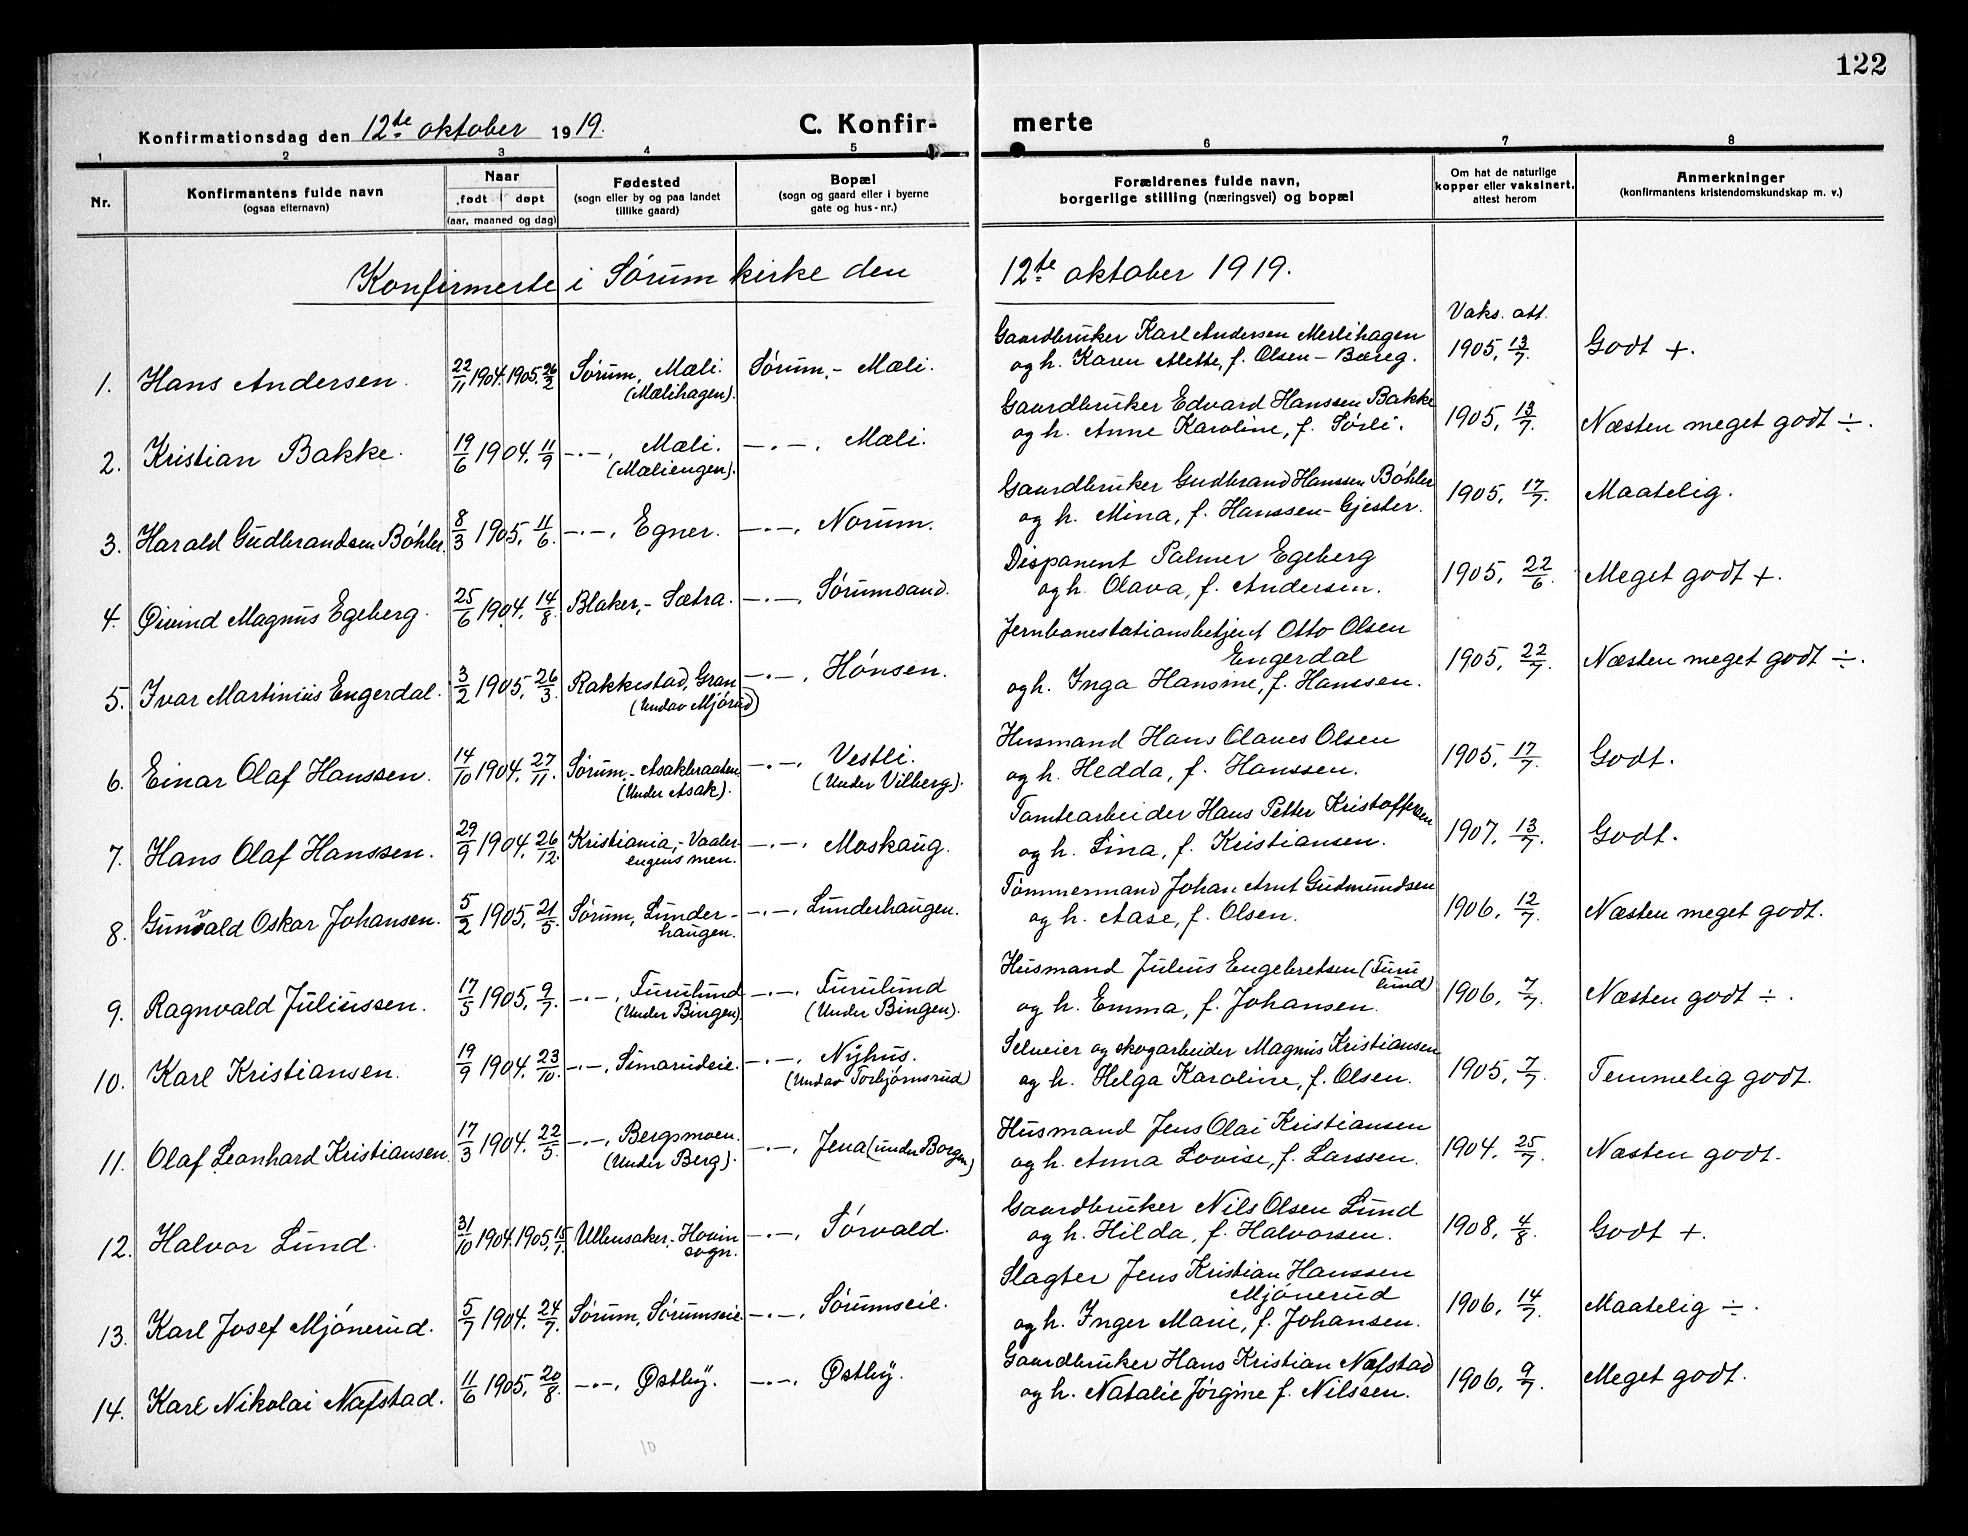 122
Konfirmationsdag den 12te oktober 1919. C. Konfir- merte
1 2 3 4 5 6 7 8
Nr. Konfirmantens fulde navn (ogsaa efternavn) Naar født døpt (aar, maaned og dag) Fødested (sogn eller by og paa landet tillike gaard) Bopæl (sogn og gaard eller i byerne gate og hus-nr.) Forældrenes fulde navn, borgerlige stilling (næringsvei) og bopæl Om hat de naturlige kopper eller vaksinert, attest herom Anmerkninger (konfirmantens kristendomskundskap m. v.)
Konfirmerte i Sørum kirke den 12te oktober 1919.
Vaks. att.
1. Hans Andersen. 22/11 1904. 1905. 26/2 Sørum, Mæli. (Mælihagen). Sørum, - Mæli. Gaardbruker Karl Andersen Merlihagen og h. Karen Mette, f. Olsen - Bæreg. 1905, 13/7. Godt +.
2. Kristian Bakke. 19/6 1904. 11/9 -·-, Mæli. (Mæliengen). -·-, Mæli. Gaardbruker Edvard Hanssen Bakke og h. Anne Karoline, f. Sørli. 1905, 13/7. Næsten meget godt ÷.
3. Harald Gudbrandsen Bøhler. 8/3 1905. 11/6. -·-, Egner. -·-, Norum. Gaardbruker Gudbrand Hanssen Bøhler og h. Mina, f. Hanssen - Gjester. 1905, 17/7. Maatelig.
4. Øivind Magnus Egeberg. 25/6 1904. 14/8. Blaker, - Sætra. -·-, Sørumsand. Disponent Palmer Egeberg og h. Olava, f. Andersen. 1905, 22/6. Meget godt +.
5. Ivar Martinius Engerdal. 3/2 1905. 26/3. Rakkestad, Gran (Undav Mjørud) -·-, Hønsen. Jernbanestationsbetjent Otto Olsen Engerdal og h. Inga Hansine, f. Hanssen. 1905, 22/7. Næsten meget godt ÷.
6. Einar Olaf Hanssen. 14/10 1904. 27/11. Sørum, - Asakbraaten (Under Asak). -·-, Vestli. (Under Vilberg). Husmand Hans Olaves Olsen og h. Hedda, f. Hanssen. 1905, 17/7. Godt.
7. Hans Olaf Hanssen. 29/9 1904. 26/12. Kristiania, - Vaalerengens men. -·-, Moskaug. Tomtearbeider Hans Petter Kristoffersen og h. Lina, f. Kristiansen. 1907, 13/7. Godt.
8. Gunvald Oskar Johansen. 5/2 1905. 21/5. Sørum, Lunder-haugen. -·-, Lunderhaugen. Tømmermand Johan Arnt Gudmundsen og h. Aase, f. Olsen. 1906, 12/7. Næsten meget godt.
9. Ragnvald Juliussen. 17/5 1905. 9/7. -·-, Furulund (Under Bingen). -·-, Furulund (Under Bingen). Husmand Julius Engebretsen (Furulund) og h. Emma, f. Johansen. 1906, 7/7. Næsten godt ÷.
10. Karl Kristiansen. 19/9 1904. 23/10. -·-, Simarudeie. -·-, Nyhus. (Undav Torbjørnsrud) Selveier og skogarbeider Magnus Kristiansen og h. Helga Karoline, f. Olsen. 1905, 7/7. Temmelig godt.
11. Olaf Leonhard Kristiansen. 17/3 1904. 22/5. -·-, Bergsmoen. (Under Berg). -·-, Jena (under Borgen) Husmand Jens Olai Kristiansen og h. Anna Lovise, f. Larssen. 1904, 25/7. Næsten godt.
12. Halvor Lund. 31/10 1904. 1905. 15/1. Ullensaker, - Hovin sogn. -·-, Sørvald. Gaardbruker Nils Olsen Lund og h. Hilda, f. Halvorsen. 1908, 4/8. Godt +.
13. Karl Josef Mjønerud. 5/7 1904. 24/7. Sørum, Sørumseie. -·-, Sørumseie. Slagter Jens Kristian Hanssen Mjønerud og h. Inger Marie, f. Johansen. 1906, 14/7. Maatelig ÷.
14. Karl Nikolai Nafstad. 11/6 1905. 20/8. -·-, Østby. -·-, Østby. Gaardbruker Hans Kristian Nafstad og h. Natalie Jørgine f. Nilssen. 1906, 9/7. Meget godt.
10